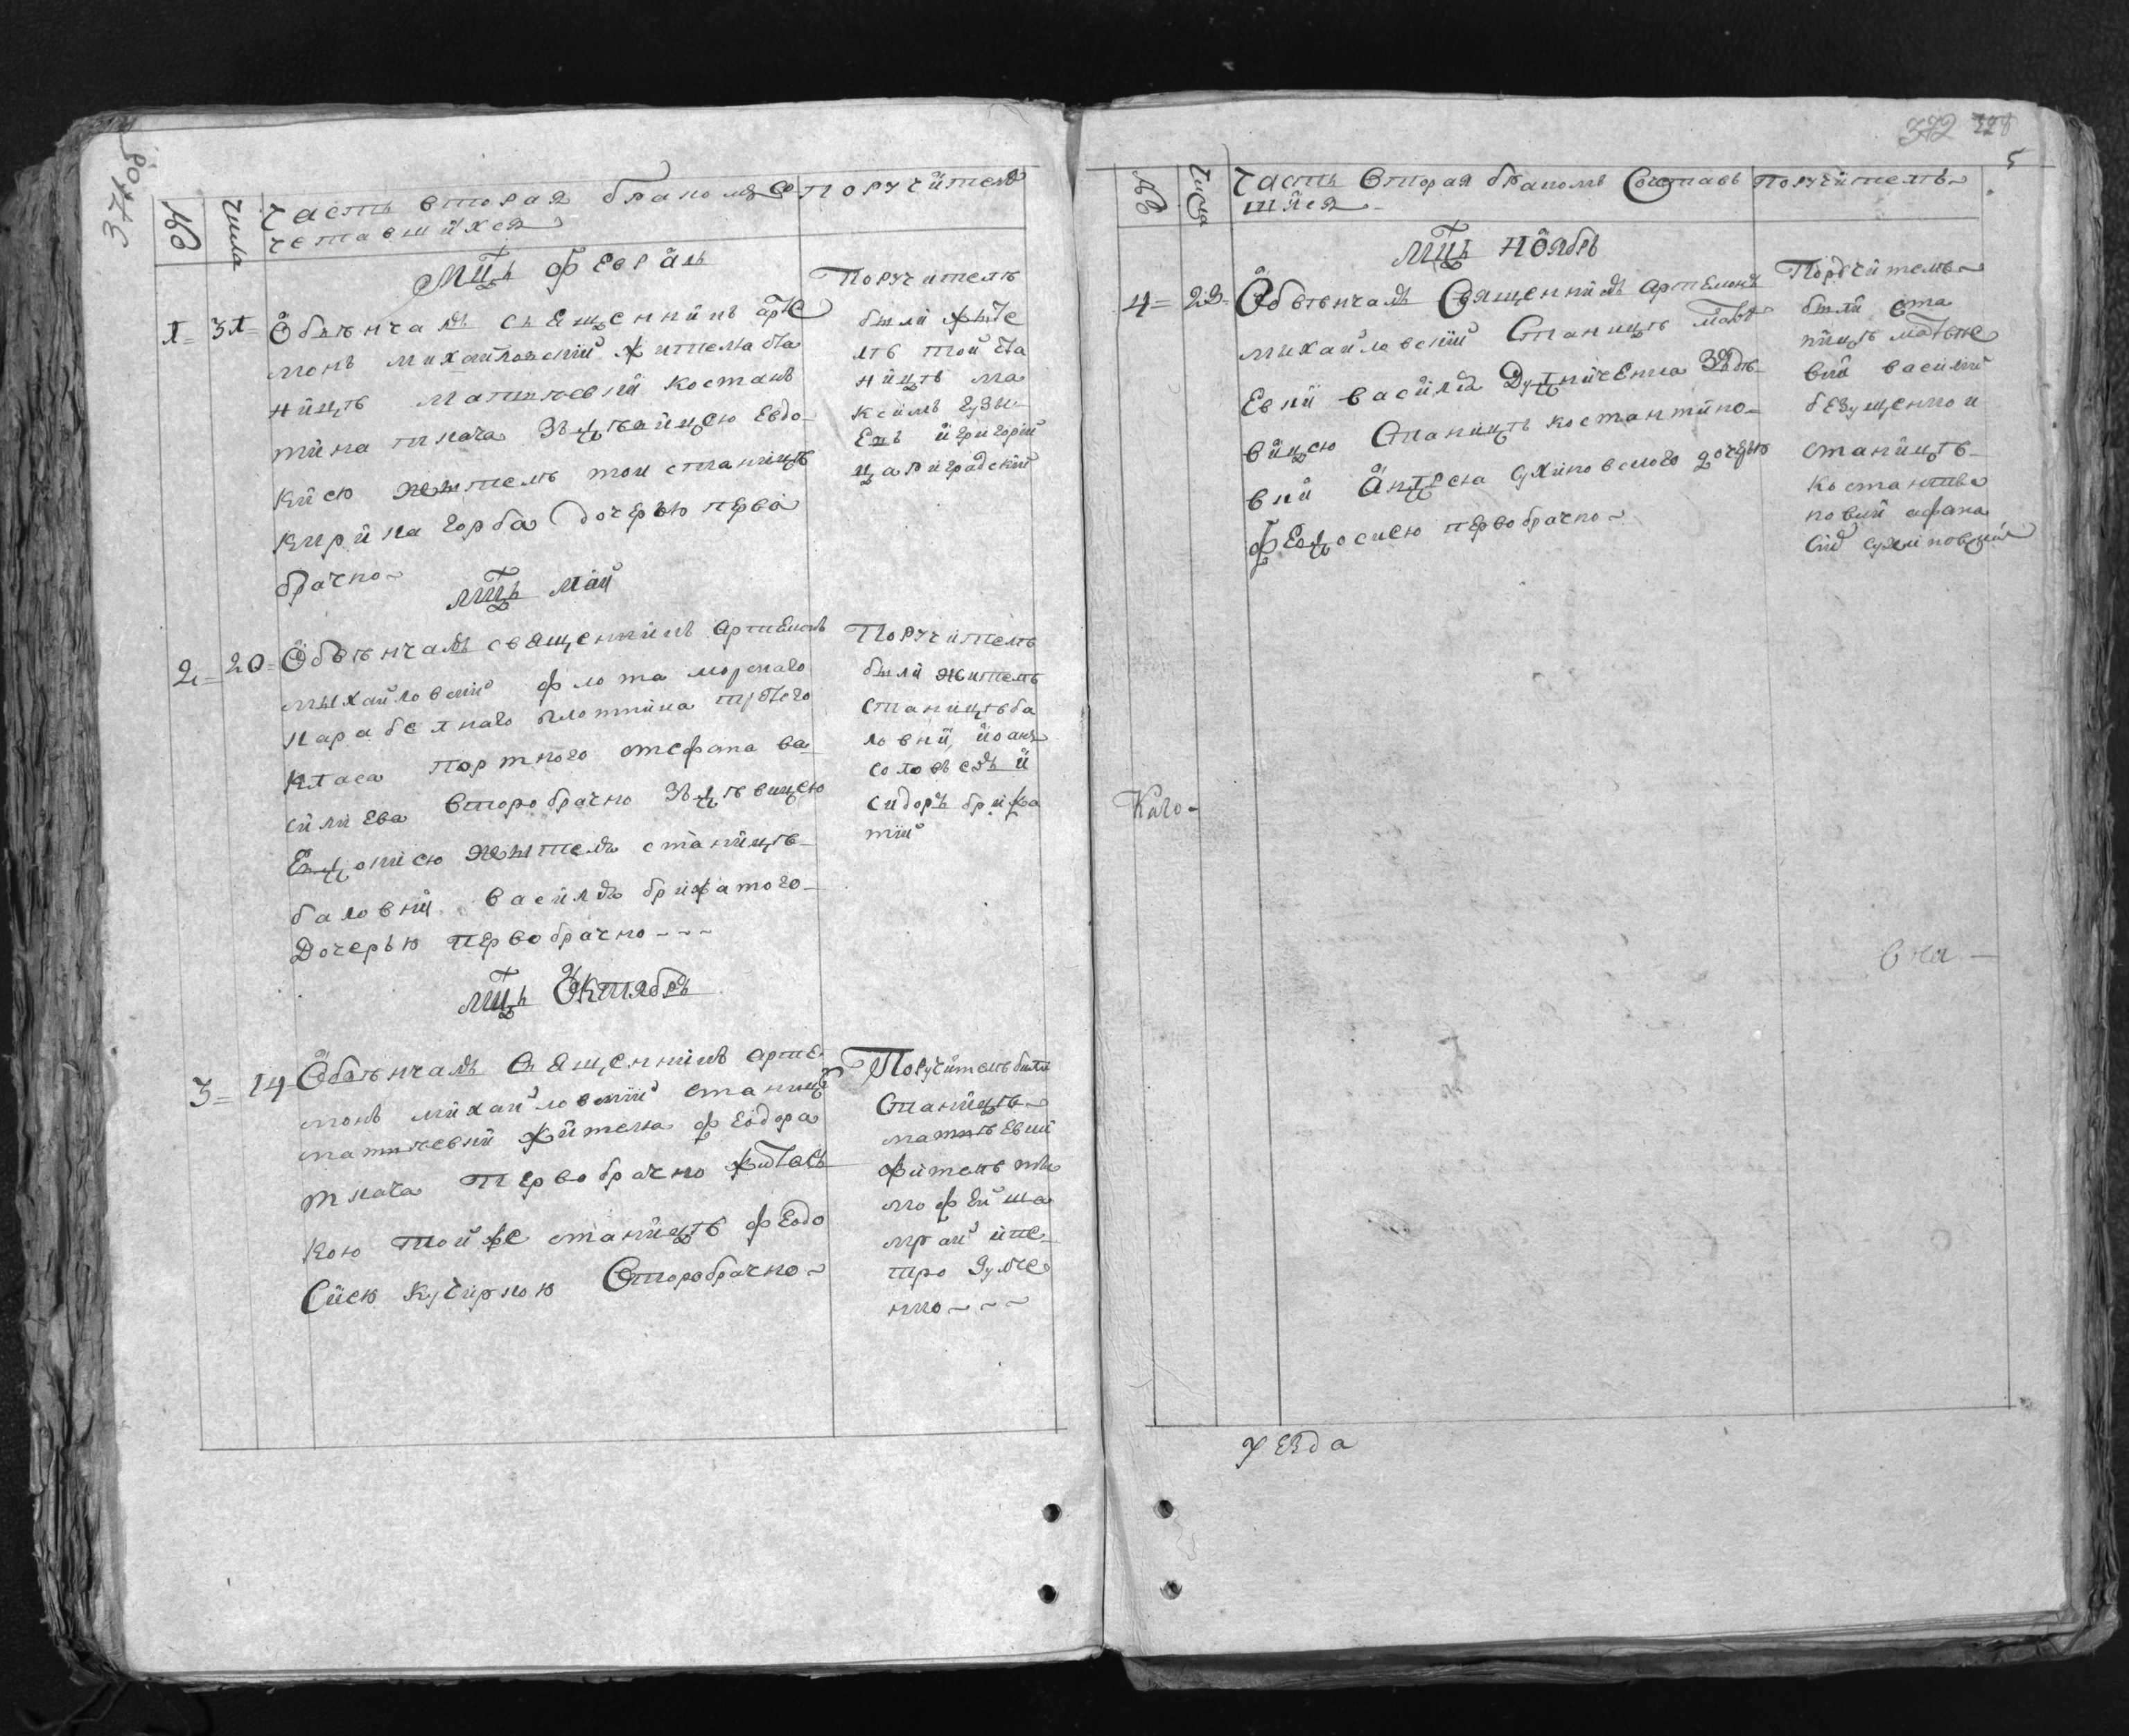 371 об
№
Числа
Часть вторая бракомъ со
четавшихся
Поручители
Мцъ февраль
1 = 31 =
Обвѣнчалъ священникъ арте
монъ михайловский жителя ста
ницѣ матиясвки костан
тина ткача зъ дѣвицею евдо
киею жытеля тои станицѣ
кирила горба дочерью перво
брачно
Поручители
были жыте
лѣ той ста
ницѣ ма
ксимъ
й григорий
цариградский
Мцъ май
2 = 20 =
Обвѣнчалъ священникъ артемонъ
мыхайловский флота морскаго
карабелнаго плотника третего
класа портного стефана ва
силиева второбрачно зъ дѣвицею
Евдокиею жытеля станицѣ
баловки василя брижатого
дочерью первобрачно - - -
Поручителѣ
были жители
станицѣ ба
ловки, иоанъ
соловьевъ и
сидоръ брижа
тий
Мцъ октябрь
3 = 14
Обвѣнчалъ священникъ арте
монъ михайловский станицѣ
матиясвки жителя феодора
ткача первобрачно з жытель
кою той же станицѣ феодо
сиею кучиркою второбрачно
Поручители были
станицѣ
матвѣевки
жителѣ ти
мофей ша
край и пе
тро
нко - - -
372
328
5
№
Числа
Часть вторая бракомъ сочетав
шихся
Поручителѣ
Мцъ ноябрь
4 = 23 =
Обвѣнчалъ священникъ артемонъ
мыхайловский станицѣ матв
евки василя дудниченка зъ дѣ
вицею станицѣ костантино
вки андрея сухиновского дочерью
феодосиею первобрачно
Поручители
были ста
ницѣ матве
вки василий
безущенко и
станицѣ
костанти
новки афана
сий сухиновский
Каго
в на
уезда